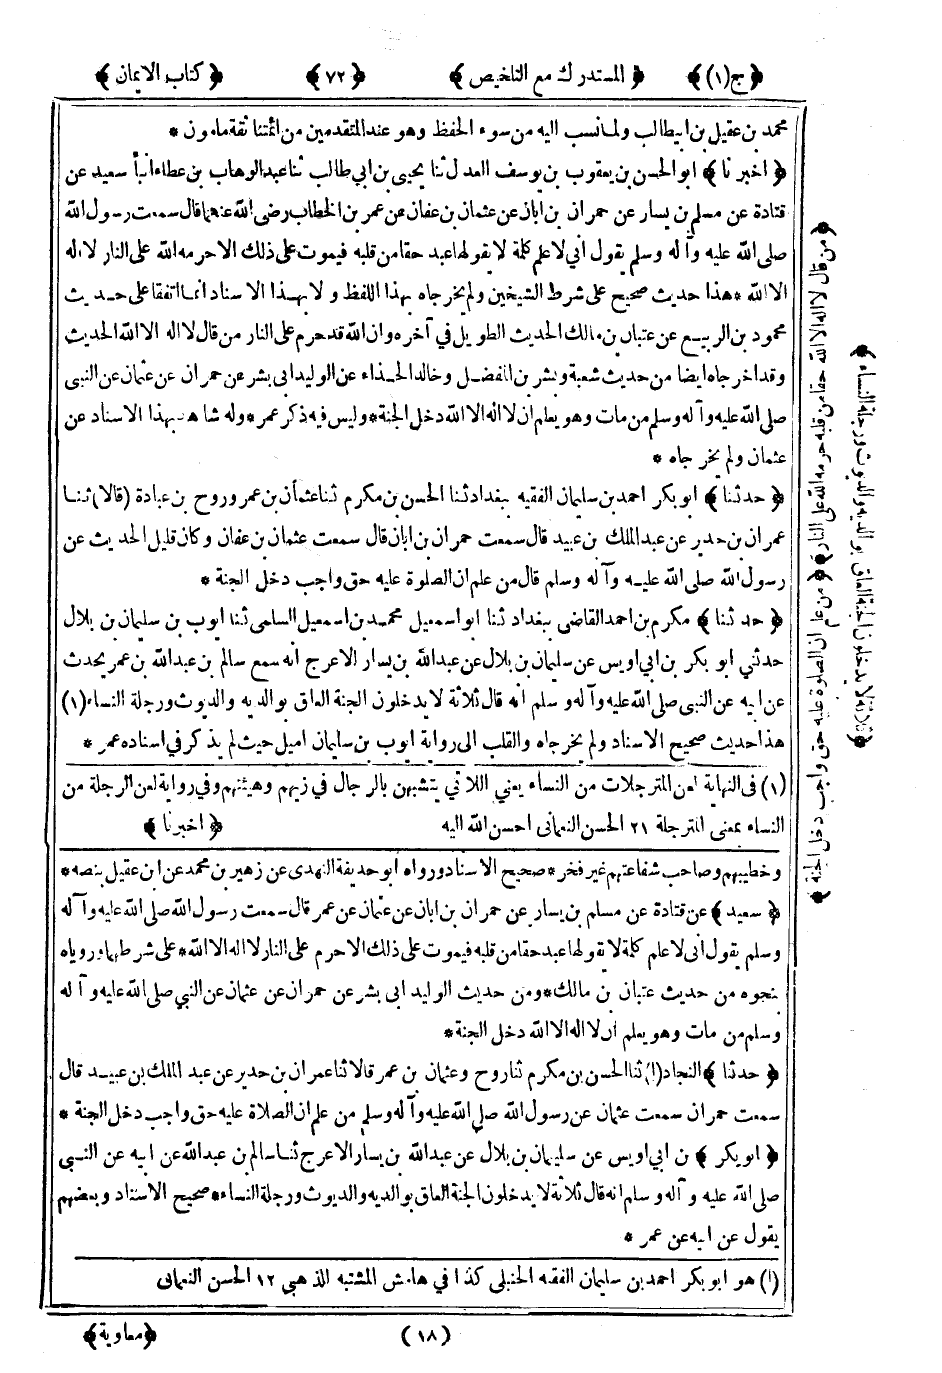 ﴿ ج(١) ﴾ ﴿ المستدرك مع التلخيص ﴾ ﴿ ٧٢ ﴾ ﴿ كتاب الايمان ﴾
محمد بن عقيل بن ابيطالب ولما نسب اليه من سوء الحفظ وهو عند المتقدمين من ائمتنا ثقة مامون *
﴿ اخبرنا ﴾ ابو الحسن بن يعقوب بن يوسف العدل ثنا يحيى بن ابي طالب ثنا عبد الوهاب بن عطاء انبأ سعيد عن
قتادة عن مسلم بن يسار عن حمران بن ابان عن عثمان بن عفان عن عمر بن الخطاب رضى الله عنهما قال سمعت رسول الله
صلى الله عليه وآله وسلم يقول انى لاعلم كلمة لا يقولها عبد حقا من قلبه فيموت على ذلك الا حرمه الله على النار لا اله
الا الله * هذا حديث صحيح على شرط الشيخين ولم يخرجاه بهذا اللفظ ولا بهذا الاسناد انما اتفقا على حديث
محمود بن الربيع عن عتبان بن مالك الحديث الطويل في آخره وان الله قد حرم على النار من قال لا اله الا الله الحديث
وقد اخرجاه ايضا من حديث شعبة وبشر بن المفضل وخالد الحذاء عن الوليد ابى بشر عن حمران عن عثمان عن النبى
صلى الله عليه وآله وسلم من مات وهو يعلم ان لا اله الا الله دخل الجنة * وليس فيه ذكر عمر * وله شاهد بهذا الاسناد عن
عثمان ولم يخرجاه *
﴿ حدثنا ﴾ ابو بكر احمد بن سليمان الفقيه ببغداد ثنا الحسن بن مكرم ثنا عثمان بن عمر وروح بن عبادة (قالا) ثنا
عمران بن حدير عن عبد الملك بن عبيد قال سمعت حمران بن ابان قال سمعت عثمان بن عفان وكان قليل الحديث عن
رسول الله صلى الله عليه وآله وسلم قال من علم ان الصلوة عليه حق واجب دخل الجنة *
﴿ حدثنا ﴾ مكرم بن احمد القاضى ببغداد ثنا ابو اسمعيل محمد بن اسمعيل السلمى ثنا ايوب بن سليمان بن بلال
حدثنى ابو بكر بن ابى اويس عن سليمان بن بلال عن عبد الله بن يسار الاعرج انه سمع سالم بن عبد الله بن عمر يحدث
عن ابيه عن النبى صلى الله عليه وآله وسلم انه قال ثلاثة لا يدخلون الجنة العاق بوالديه والديوث ورجلة النساء (١)
هذا حديث صحيح الاسناد ولم يخرجاه والقلب الى رواية ايوب بن سليمان اميل حيث لم يذكر في اسناده عمر *
(١) فى النهاية لعن المترجلات من النساء يعنى اللاتي يتشبهن بالرجال في زيهم وهيئتهم وفي رواية لعن الرجلة من
النساء بمعنى المترجلة ٢١ الحسن النعمانى احسن الله اليه ﴿ اخبرنا ﴾
وخطيبهم وصاحب شفاعتهم غير فخر * صحيح الاسناد ورواه ابو حذيفة النهدى عن زهير بن محمد عن ابن عقيل بنصه *
﴿ سعيد ﴾ عن قتادة عن مسلم بن يسار عن حمران بن ابان عن عثمان عن عمر قال سمعت رسول الله صلى الله عليه وآله
وسلم يقول انى لاعلم كلمة لا يقولها عبد حقا من قلبه فيموت على ذلك الا حرم على النار لا اله الا الله * على شرطهما ورويا
نحوه من حديث عتبان بن مالك * ومن حديث الوليد ابى بشر عن حمران عن عثمان عن النبي صلى الله عليه وآله
وسلم من مات وهو يعلم ان لا اله الا الله دخل الجنة *
﴿ حدثنا ﴾ النجاد (١) ثنا الحسن بن مكرم ثنا روح وعثمان بن عمر قالا ثنا عمران بن حدير عن عبد الملك بن عبيد قال
سمعت حمران سمعت عثمان عن رسول الله صلى الله عليه وآله وسلم من علم ان الصلاة عليه حق واجب دخل الجنة *
﴿ ابو بكر ﴾ بن ابى اويس عن سليمان بن بلال عن عبد الله بن يسار الاعرج ثنا سالم بن عبد الله عن ابيه عن النبى
صلى الله عليه وآله وسلم انه قال ثلاثة لا يدخلون الجنة العاق بوالديه والديوث ورجلة النساء * صحيح الاسناد وبعضهم
يقول عن ابيه عن عمر *
(١) هو ابو بكر احمد بن سليمان الفقه الحنبلى كذا في هامش المشتبه الذهبى ١٢ الحسن النعمانى
(١٨) ﴿معاوية﴾
﴿ من قال لا اله الا الله حقا من قلبه حرمه الله على النار ﴾ ﴿ من علم ان الصلوة عليه حق واجب دخل الجنة ﴾
﴿ ثلاثة لا يدخلون الجنة العاق بوالديه والديوث ورجلة النساء ﴾